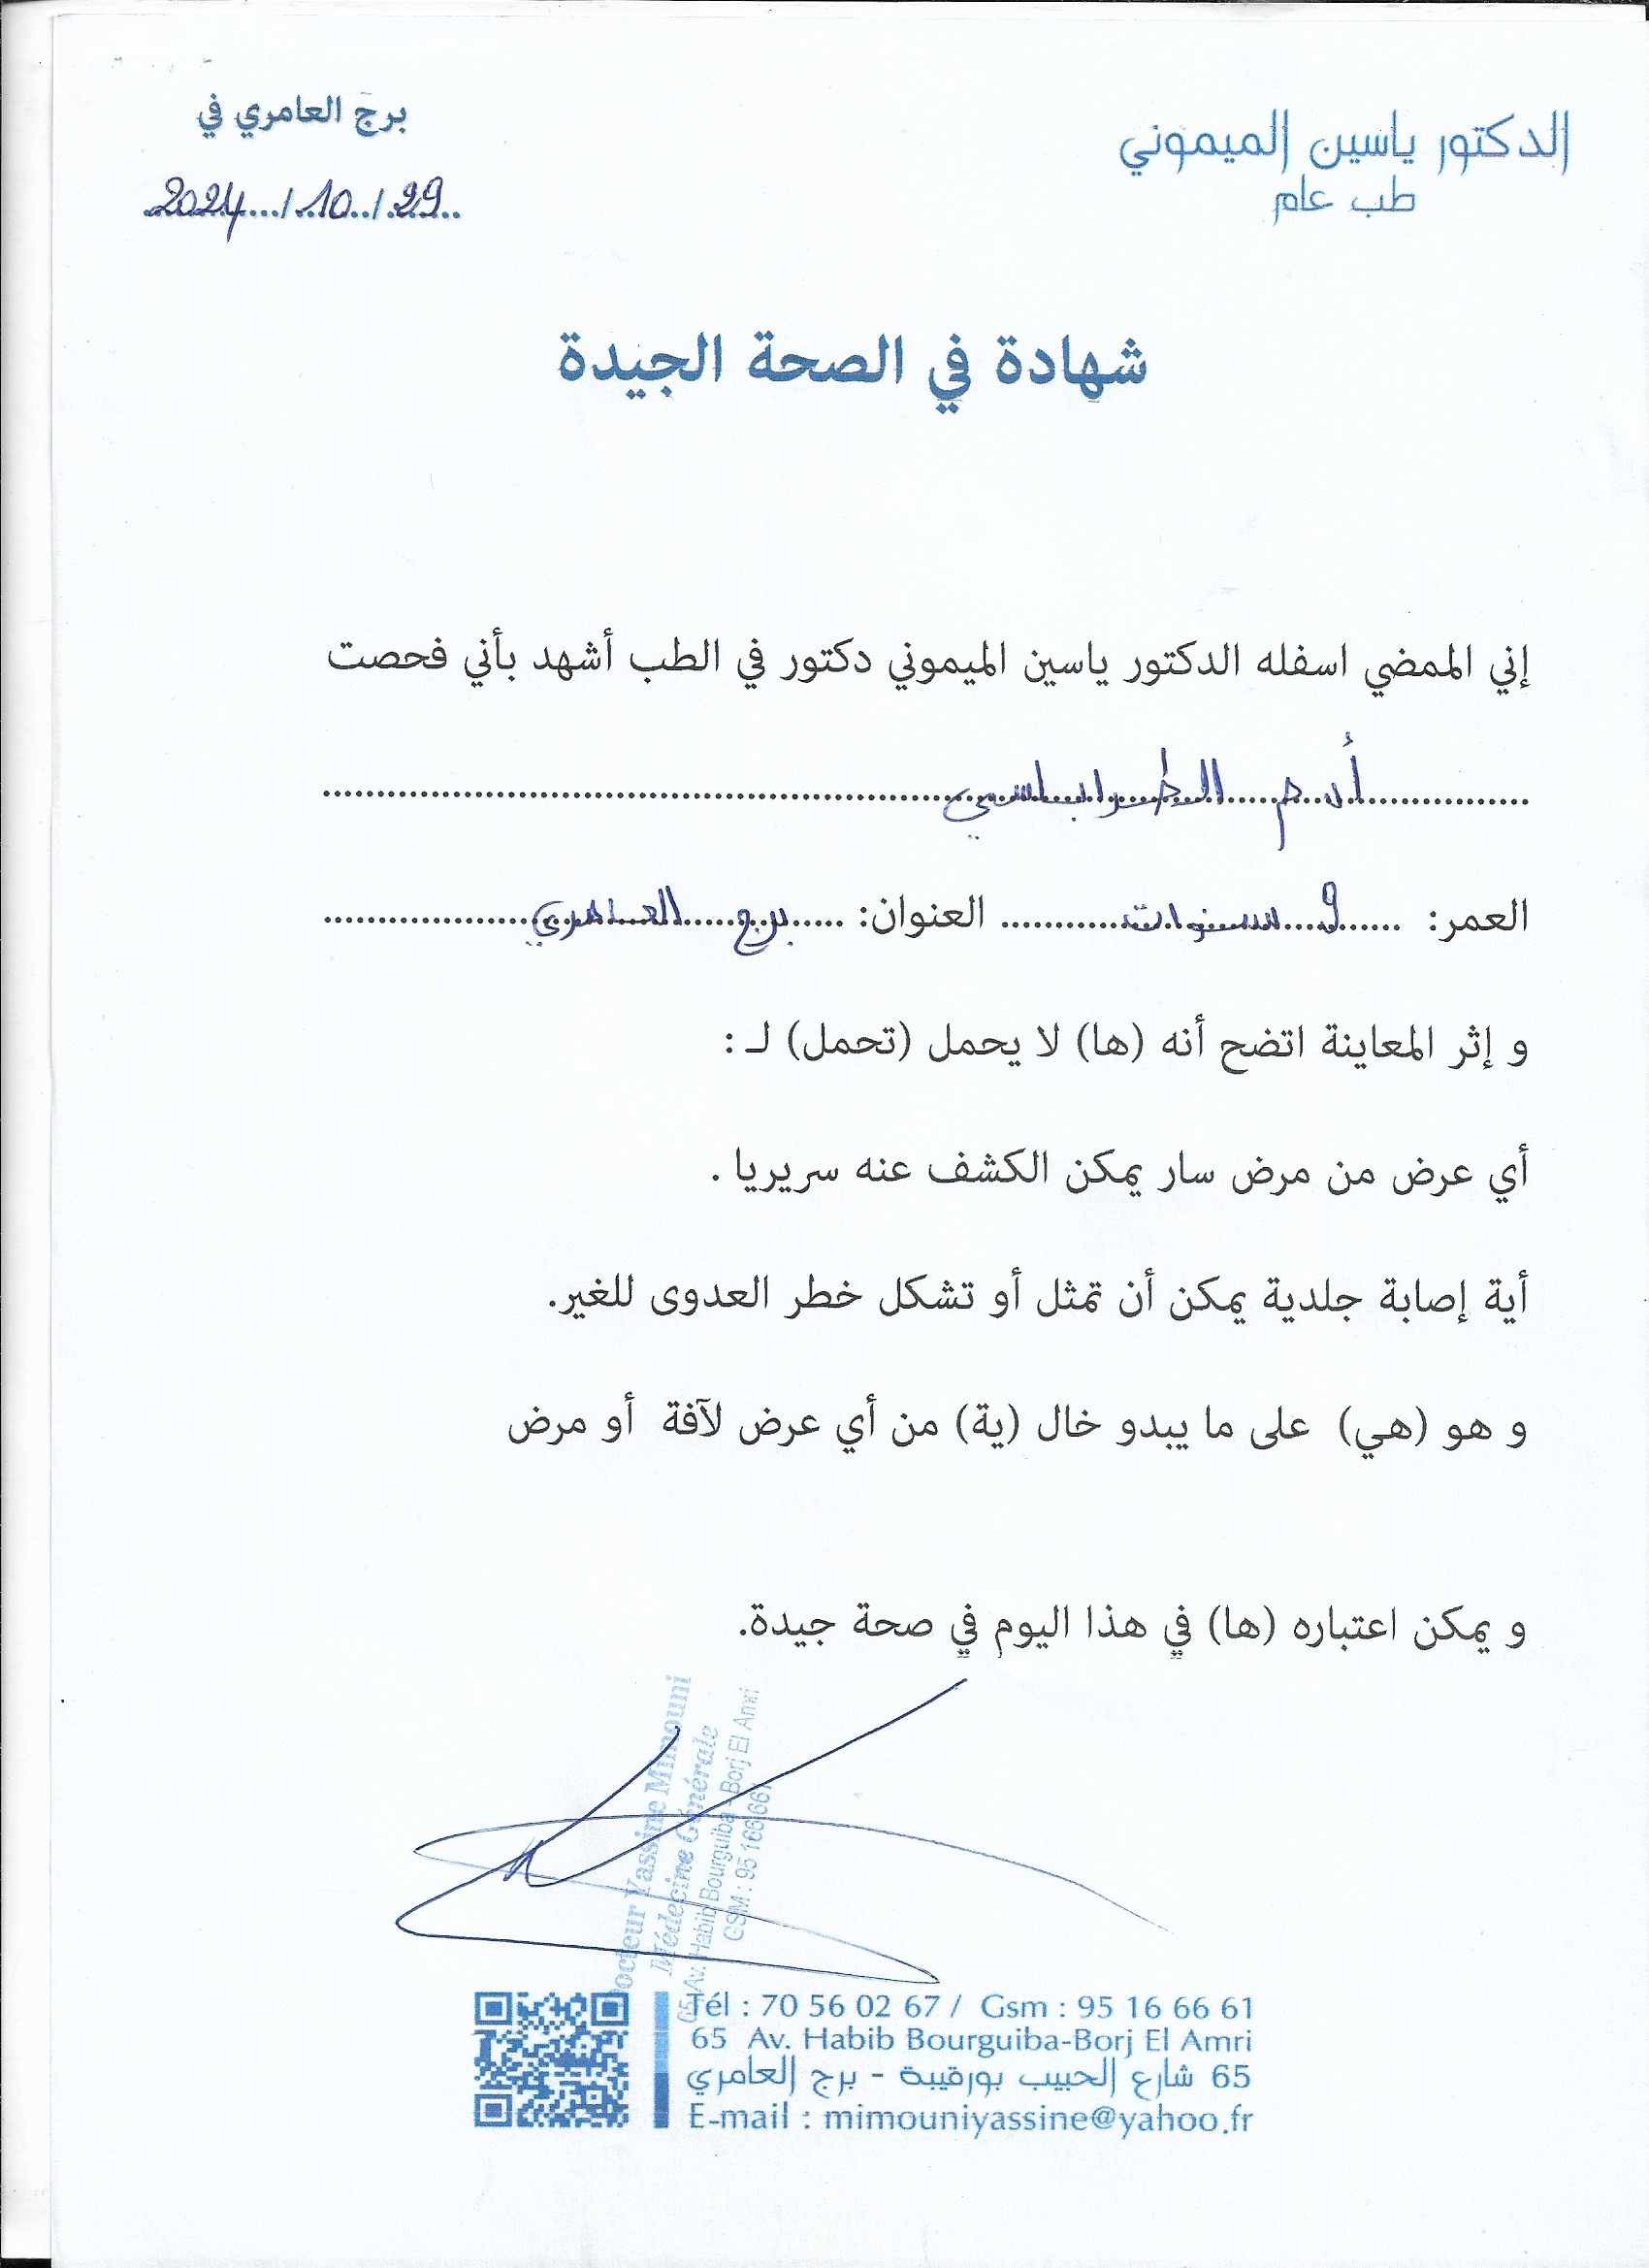 الدكتور ياسين الميموني
طب عام
برج العامري في
2024/10/29
شهادة في الصحة الجيدة
إني الممضي اسفله الدكتور ياسين الميموني دكتور في الطب أشهد بأني فحصت
الطرابلسي
العمر: 9 سنوات العنوان: برج العامري
و إثر المعاينة اتضح أنه (ها) لا يحمل (تحمل) لـ :
أي عرض من مرض سار يمكن الكشف عنه سريريا .
أية إصابة جلدية يمكن أن تمثل أو تشكل خطر العدوى للغير.
و هو (هي) على ما يبدو خال (ية) من أي عرض لآفة أو مرض
و يمكن اعتباره (ها) في هذا اليوم في صحة جيدة.
Docteur Yassine Mimouni
Médecine Générale
65, Av. Habib Bourguiba - Borj El Amri
GSM : 95 166 661
Tél : 70 56 02 67 / Gsm : 95 16 66 61
65 Av. Habib Bourguiba-Borj El Amri
65 شارع الحبيب بورقيبة - برج العامري
E-mail : mimouniyassine@yahoo.fr